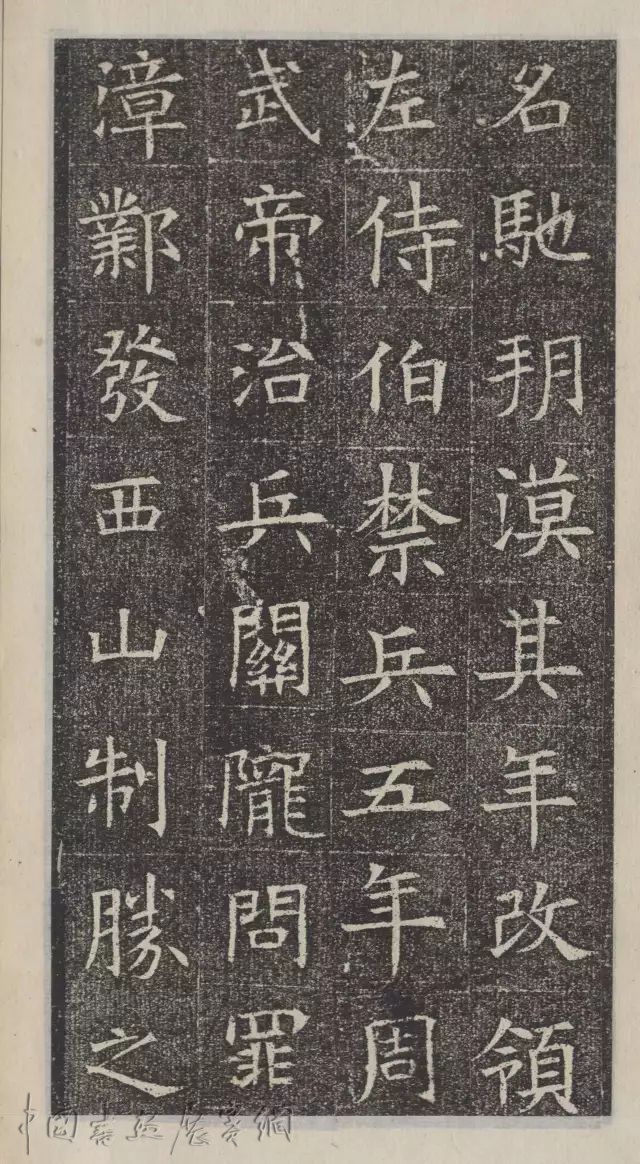 名馳朔漠其年改領
左侍伯禁兵五年周
武帝治兵關隴問罪
漳鄴發西山制勝之
中国書法展賽網